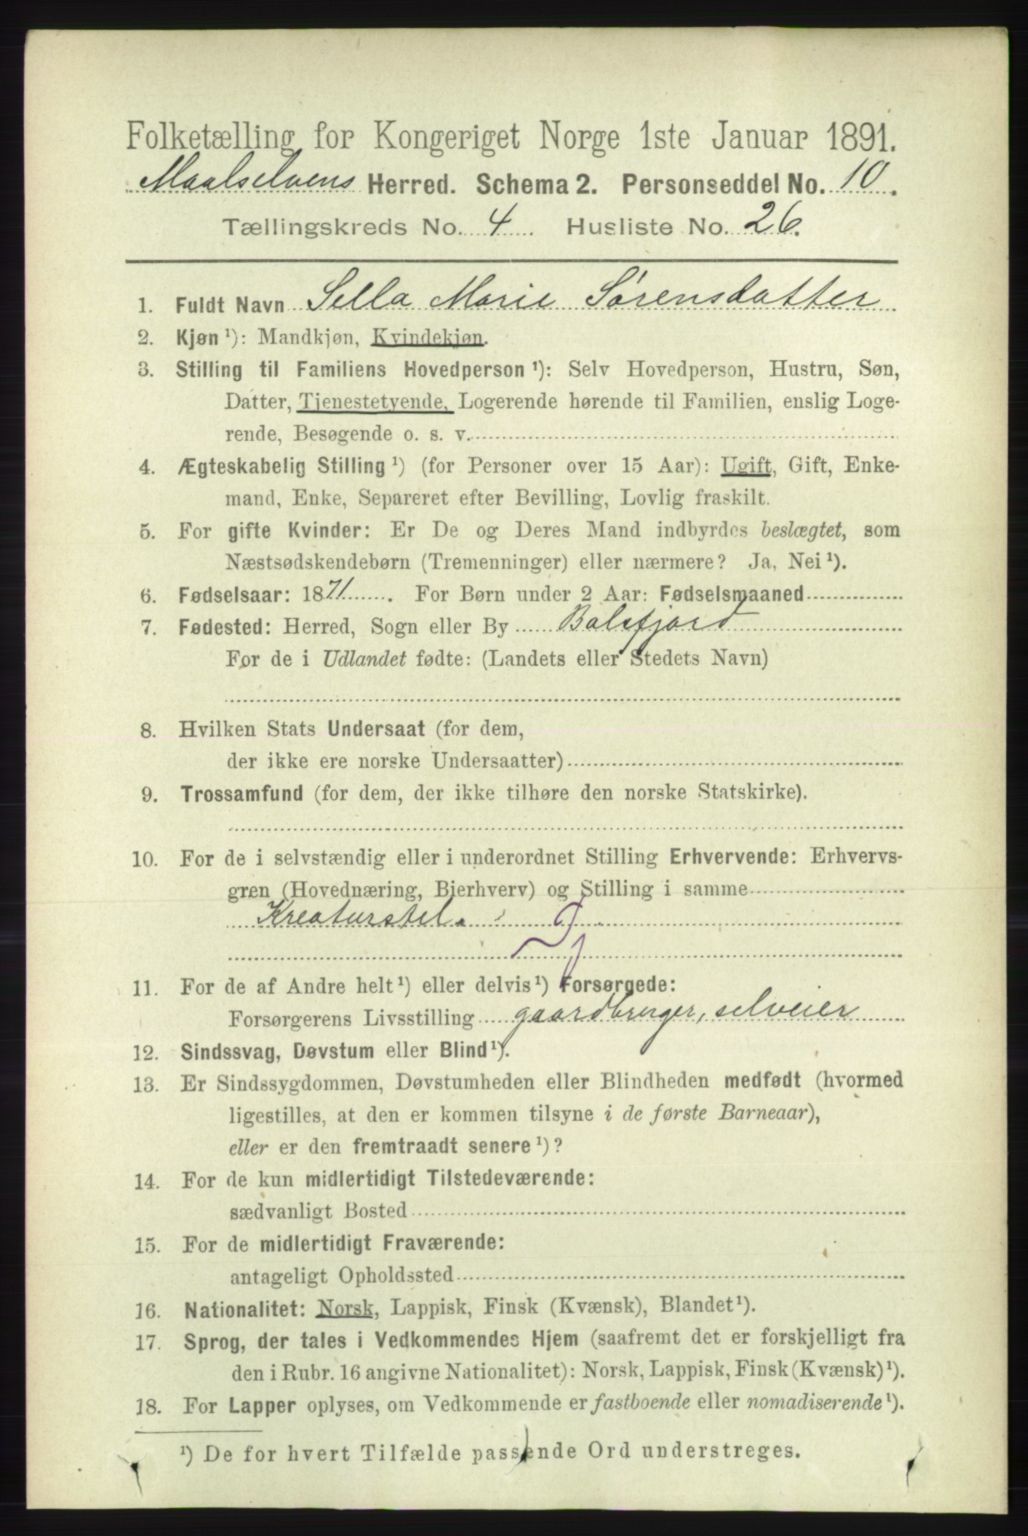 Folketælling for Kongeriget Norge 1ste Januar 1891.
Maalselvens Herred. Schema 2. Personseddel No. 10.
Tællingskreds No. 4 Husliste No. 26.
1. Fuldt Navn Sella Marie Sørensdatter
2. Kjøn¹): Mandkjøn, Kvindekjøn.
3. Stilling til Familiens Hovedperson¹): Selv Hovedperson, Hustru, Søn,
Datter, Tjenestetyende, Logerende hørende til Familien, enslig Loge-
rende, Besøgende o. s. v.
4. Ægteskabelig Stilling¹) (for Personer over 15 Aar): Ugift, Gift, Enke-
mand, Enke, Separeret efter Bevilling, Lovlig fraskilt.
5. For gifte Kvinder: Er De og Deres Mand indbyrdes beslægtet, som
Næstsødskendebørn (Tremenninger) eller nærmere? Ja, Nei¹).
6. Fødselsaar: 1871. For Børn under 2 Aar: Fødselsmaaned
7. Fødested: Herred, Sogn eller By Balsfjord
For de i Udlandet fødte: (Landets eller Stedets Navn)
8. Hvilken Stats Undersaat (for dem,
der ikke ere norske Undersaatter)
9. Trossamfund (for dem, der ikke tilhøre den norske Statskirke).
10. For de i selvstændig eller i underordnet Stilling Erhvervende: Erhvervs-
gren (Hovednæring, Bierhverv) og Stilling i samme
Kreaturstel.
11. For de af Andre helt¹) eller delvis¹) Forsørgede:
Forsørgerens Livsstilling gaardbruger, selveier
12. Sindssvag, Døvstum eller Blind¹).
13. Er Sindssygdommen, Døvstumheden eller Blindheden medfødt (hvormed
ligestilles, at den er kommen tilsyne i de første Barneaar),
eller er den fremtraadt senere¹)?
14. For de kun midlertidigt Tilstedeværende:
sædvanligt Bosted
15. For de midlertidigt Fraværende:
antageligt Opholdssted
16. Nationalitet: Norsk, Lappisk, Finsk (Kvænsk), Blandet¹).
17. Sprog, der tales i Vedkommendes Hjem (saafremt det er forskjelligt fra
den i Rubr. 16 angivne Nationalitet): Norsk, Lappisk, Finsk (Kvænsk)¹).
18. For Lapper oplyses, om Vedkommende er fastboende eller nomadiserende¹).
¹) De for hvert Tilfælde passende Ord understreges.